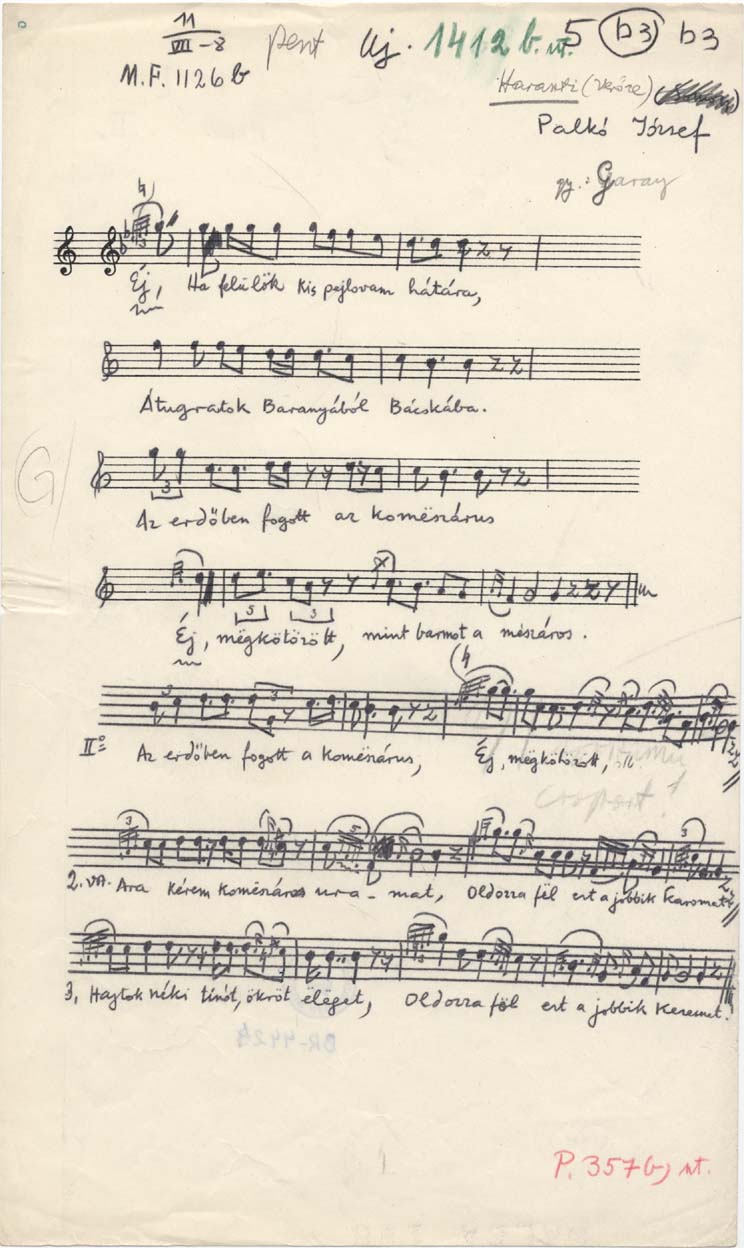 11
VII-8
pent
Új. 1412 b. nt. 5 b3 b3
M.F. 1126 b
Haranti (Verőce)
Palkó József
gy.: Garay
Éj, Ha felülök kis pejlovam hátára,
Átugratok Baranyából Bácskába.
G/
Az erdőben fogott az komëszárus
Éj, mëgkötözött, mint barmot a mészáros.
IIº Az erdőben fogott a komëszárus, Éj, mëgkötözött, stb.
csoport!
2. vsz. Arra kérem komëszáros ura-mat, Oldozza fël ezt a jobbik karomat.
3, Hajtok néki tinót, ökröt ëleget, Oldozza föl ezt a jobbik kezemet.
BR-4424
P. 357 b, nt.